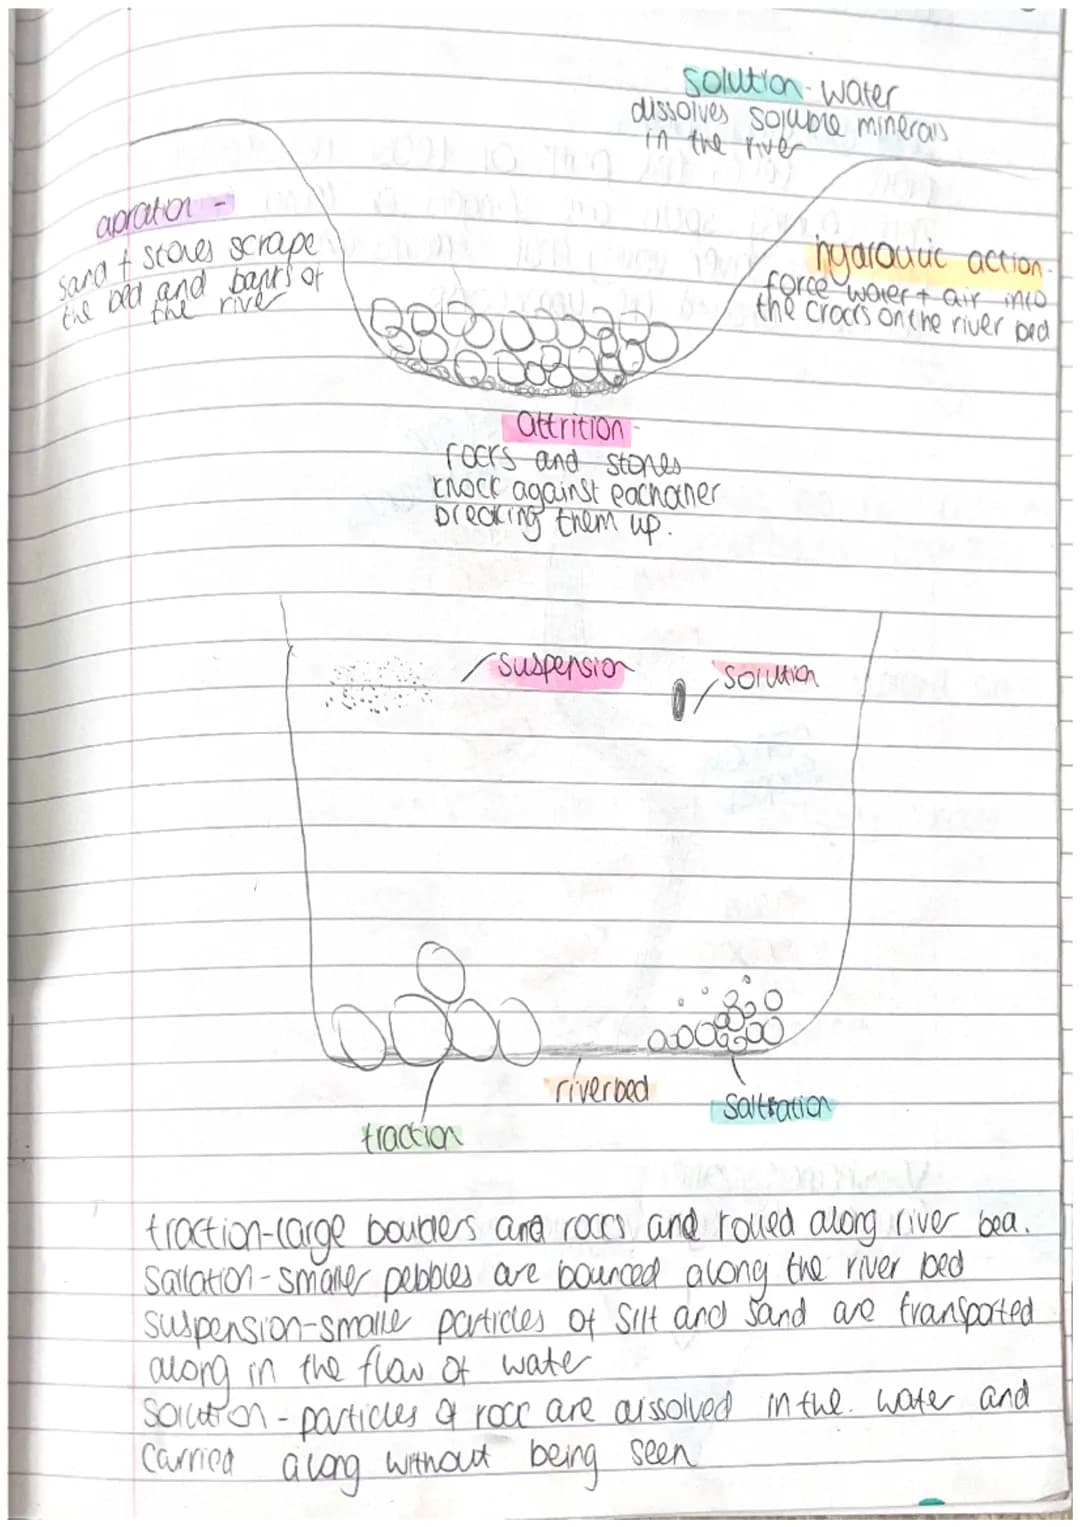 solution - water
dissolves soluble minerals
in the river
apration -
sand + stones scrape
the bed and banks of
the river
hydraulic action -
force water + air into
the cracks on the river bed
attrition -
rocks and stones
knock against eachother
breaking them up.
suspension
solution
riverbed
saltration
traction
traction - large boulders and rocks and rolled along river bed.
Sallation - smaller pebbles are bounced along the river bed
suspension - smalle particles of silt and sand are transported
along in the flow of water
solution - particles of rock are dissolved in the. water and
carried along without being seen